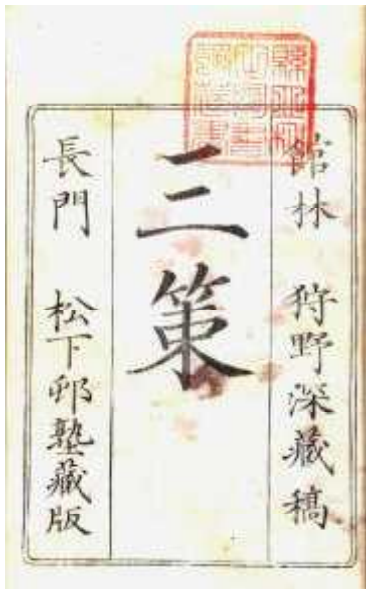 館林 狩野深藏稿
三策
長門 松下邨塾藏版